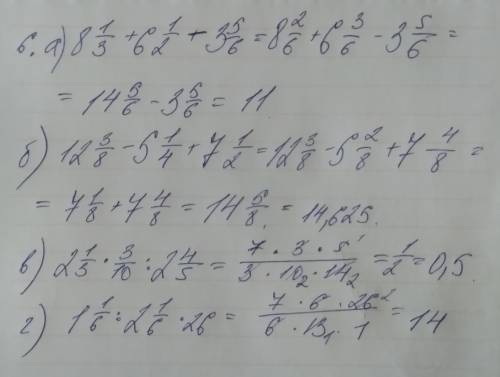 6. а) 8 1/3 + 6 1/2 - 3 5/6 = 8 2/6 + 6 3/6 - 3 5/6 =
= 14 5/6 - 3 5/6 = 11
б) 12 3/8 - 5 1/4 + 7 1/2 = 12 3/8 - 5 2/8 + 7 4/8 =
= 7 1/8 + 7 4/8 = 14 5/8 = 14,625.
в) 2 1/3 · 3/10 : 2 4/5 = 7 · 3 · 5 1 / 3 · 10 2 · 14 2 = 1/2 = 0,5.
г) 1 1/6 : 2 1/6 · 26 = 7 · 6 · 26 2 / 6 · 13 1 · 1 = 14